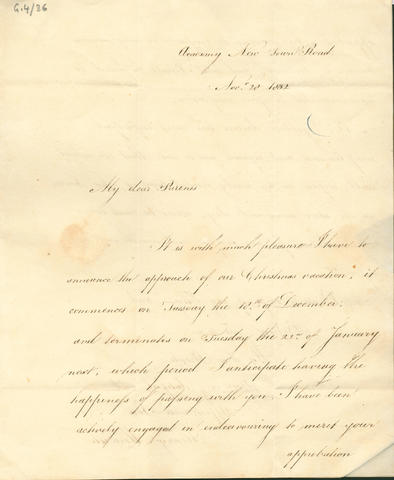 G.4/36
Academy New Town Road
Novr. 20 1832
My dear Parents
It is with much pleasure I have to
announce the approach of our Christmas vacation, it
commences on Tuesday the 18th of December,
and terminates on Tuesday the 22nd of January
next, which period I anticipate having the
happiness of passing with you, I have been
actively engaged in endeavouring to merit your
approbation